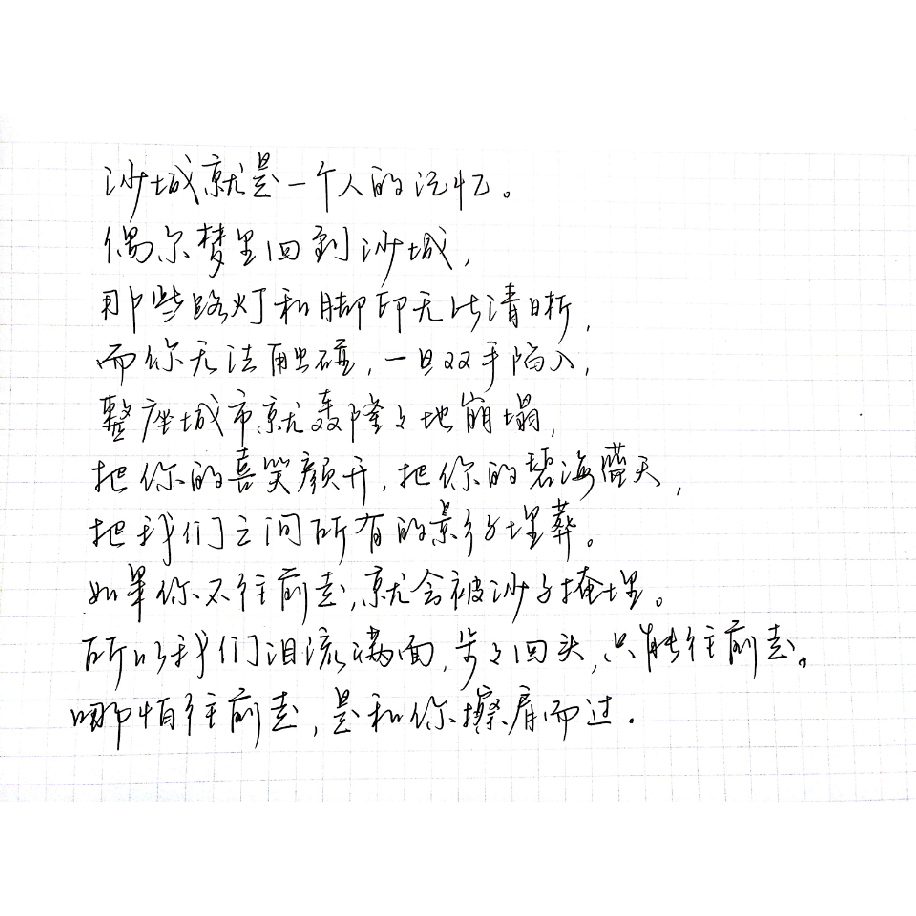 沙城就是一个人的记忆。
偶尔梦里回到沙城,
那些路灯和脚印无比清晰,
而你无法触碰,一旦双手陷入,
整座城市就轰隆々地崩塌,
把你的喜笑颜开,把你的碧海蓝天,
把我们之间所有的影子埋葬。
如果你不往前走,就会被沙子掩埋。
所以我们泪流满面,步々回头,只能往前走。
哪怕往前走,是和你擦肩而过.